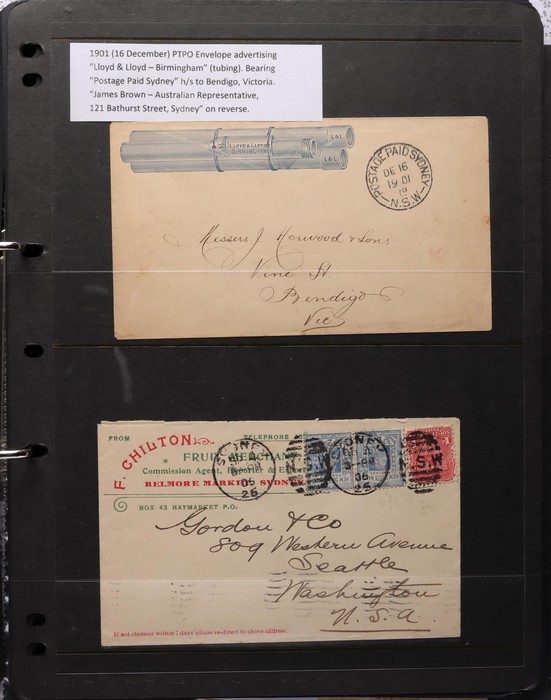 1901 (16 December) PTPO Envelope advertising
“Lloyd & Lloyd – Birmingham” (tubing). Bearing
“Postage Paid Sydney” h/s to Bendigo, Victoria.
“James Brown – Australian Representative,
121 Bathurst Street, Sydney” on reverse.
LLOYD & LLOYD
BIRMINGHAM
L&L
L&L
POSTAGE PAID SYDNEY
DE 16
19 01
N.S.W
Messrs J. Norwood & Sons
Vine St
Bendigo
Vic
FROM
TELEPHONE
F. CHILTON
FRUIT MERCHANT
Commission Agent, Exporter &
BELMORE MARKET SYDNEY
BOX 43 HAYMARKET P.O.
SYDNEY
06
26
SYDNEY
06
26
N.S.W
Gordon & Co
809 Western Avenue
Seattle
Washington
U.S.A.
If not claimed within 7 days please re-direct to above address.